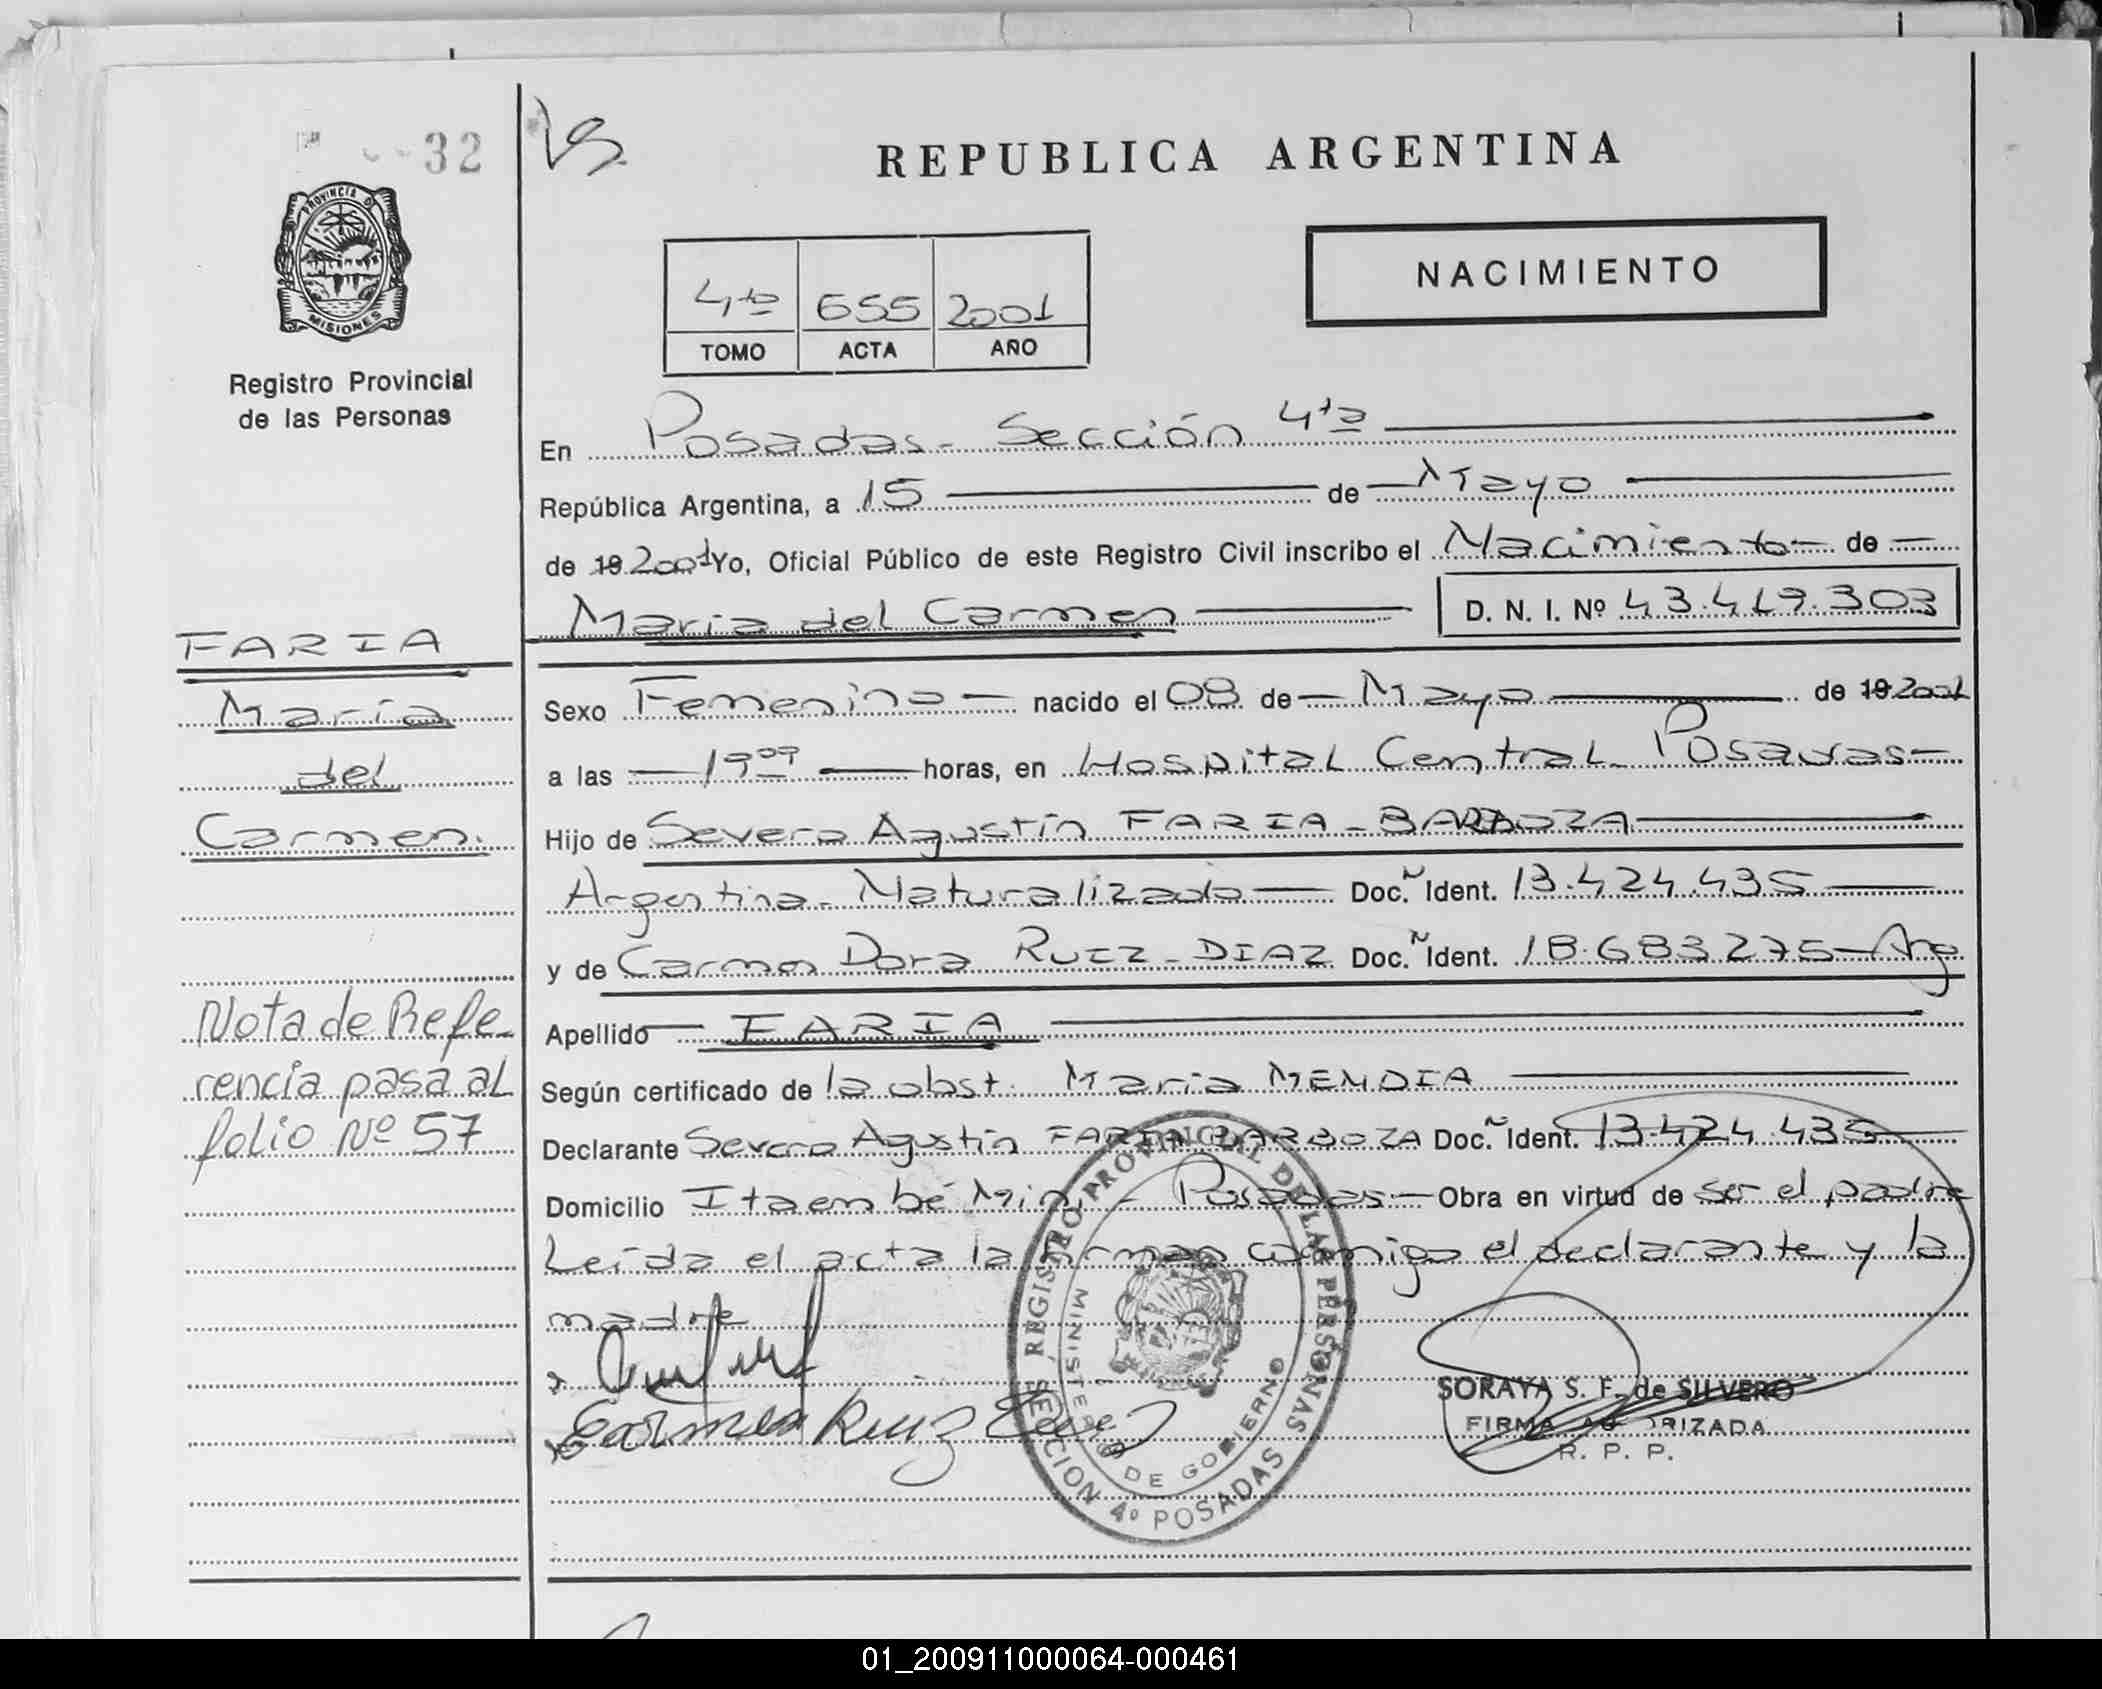 32
REPUBLICA ARGENTINA
PROVINCIA D
MISIONES
Registro Provincial
de las Personas
NACIMIENTO
4to 655 2001
TOMO ACTA AÑO
En Posadas - Sección 4ta
República Argentina, a 15 de Mayo
de 19 2001 Yo, Oficial Público de este Registro Civil inscribo el Nacimiento de
María del Carmen D. N. I. Nº 43.419.303
FARIA
María
del
Carmen.
Sexo Femenino nacido el 08 de Mayo de 19 2001
a las 19 09 horas, en Hospital Central - Posadas
Hijo de Severo Agustín FARIA - BARBOZA
Argentina - Naturalizado Doc. Ident. 13.424.435
y de Carmen Dora RUIZ - DIAZ Doc. Ident. 18.683.275 - Arg
Nota de Refe-
rencia pasa al
folio Nº 57
Apellido FARIA
Según certificado de la obst. María MENDIA
Declarante Severo Agustín FARIA BARBOZA Doc. Ident. 13.424.435
Domicilio Itaembé Miní - Posadas - Obra en virtud de ser el padre
Leída el acta la firman conmigo el declarante y la
madre
Carmen Ruiz
REGISTRO PROVINCIAL DE LAS PERSONAS
SECCION 4º POSADAS
MINISTERIO DE GOBIERNO
SORAYA S. F. de SILVERO
FIRMA AUTORIZADA
R. P. P.
01_200911000064-000461